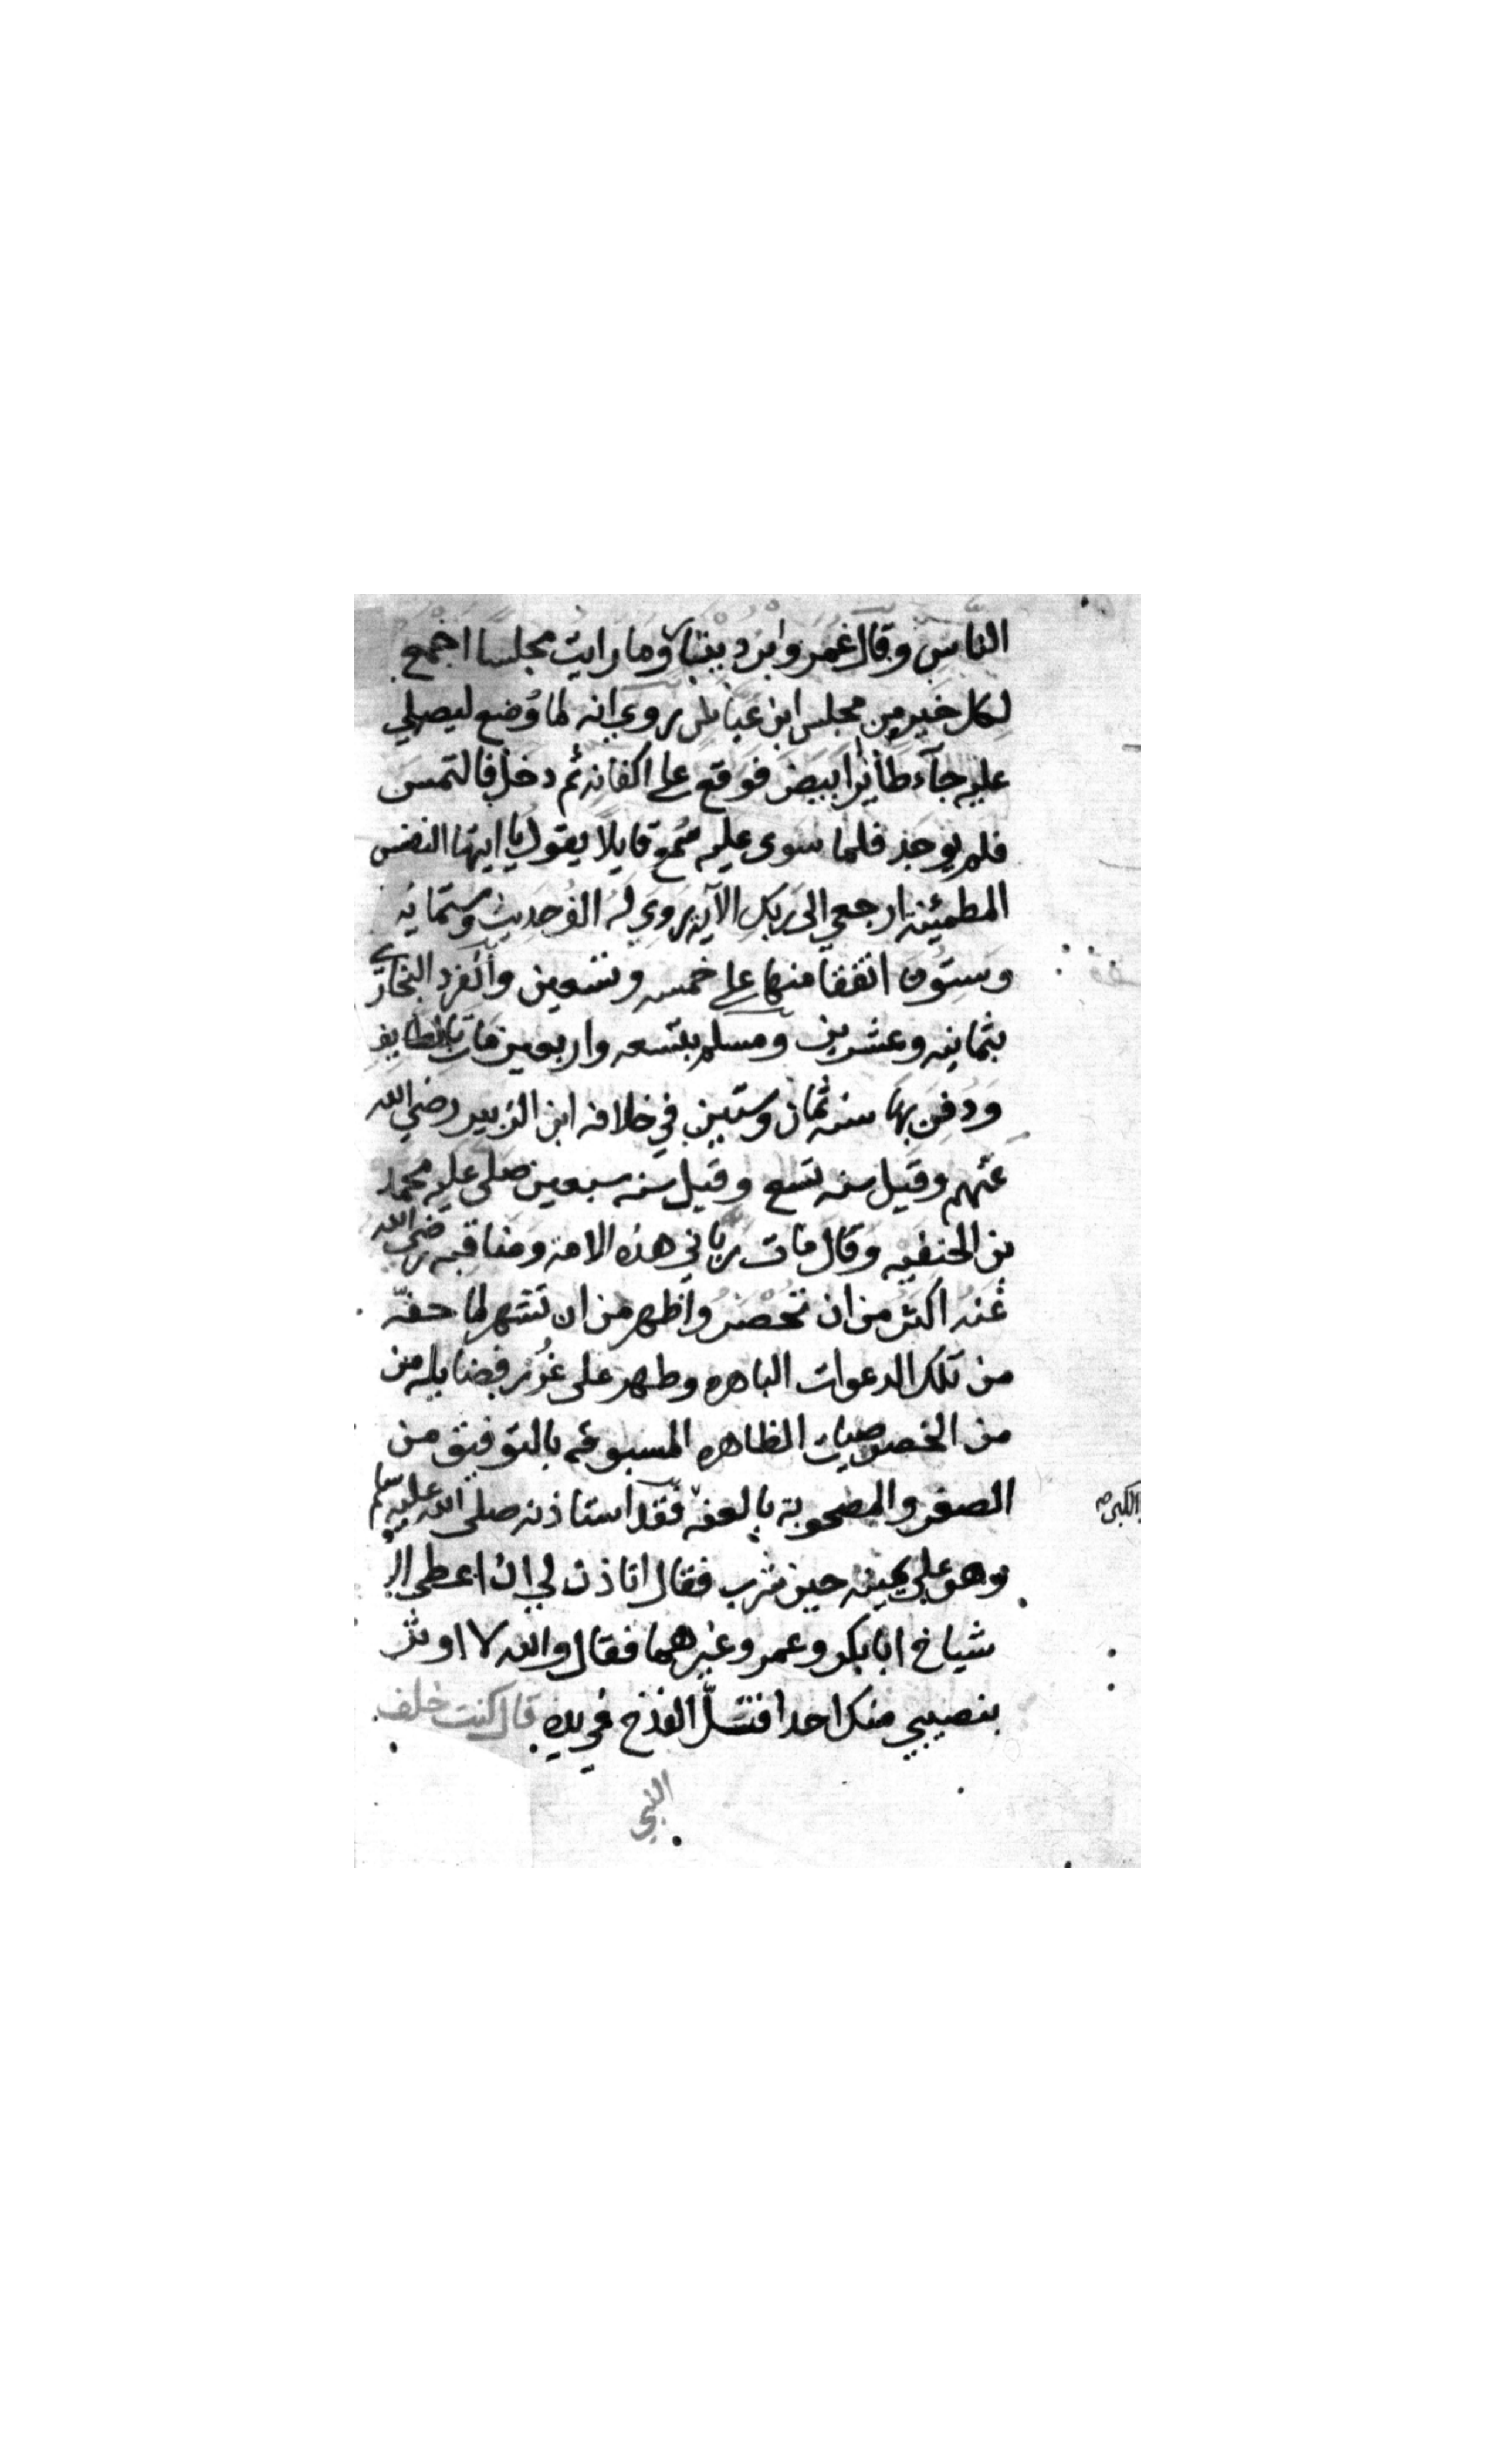 الناس وقال عمرو ابن دينار وما رايت مجلسا اجمع
لكل خير من مجلس ابن عباس روي انه لما وُضع ليصلي
عليه جآء طآئرا ابيض فوقع على اكفانه ثم دخل فالتمس
فلم يوجد فلما سوى عليه سُمع قايلا يقول يا ايتها النفس
المطمئنة ارجعي الى ربك الآية روي له الف حديث وستماية
وستون اتفقا منها على خمسه وتسعين وانفرد البخاري
بثمانيه وعشرين ومسلم بتسعه واربعين مات بالطايف
ودفن بها سنه ثمان وستين في خلافه ابن الزبير رضي الله
عنهم وقيل سنه تسع وقيل سنه سبعين صلى عليه محمد
بن الحنفيه وقال مات رباني هذه الامة ومناقبه رضي الله
عنه اكثر من ان تحصر واظهر من ان تشهر لما حفّه
من تلك الدعوات الباهره وظهر على غُرر فضايله من
من الخصوصيات الظاهره المسبوغه بالتوفيق من
الصغر والمصحوبة بالعفه فقد استاذنه صلى الله عليه وسلم
وهو على يمينه حين شرب فقال اتاذن لي ان اعطي الا
شياخ ابابكر وعمر وغيرهما فقال والله لا اوثر
بنصيبي منك احدا فتلّ القدح في يده قال كنت خلف
النبي